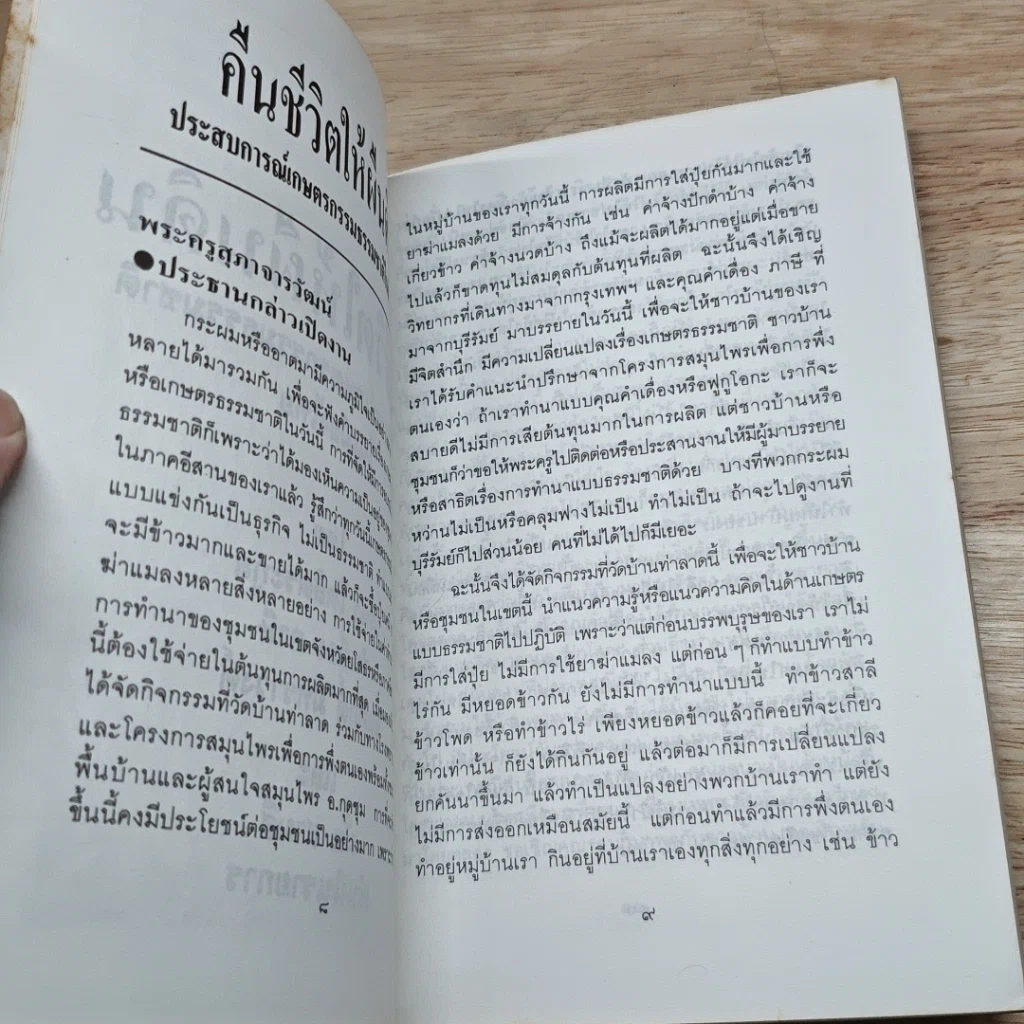 คืนชีวิตให้ผืน
ประสบการณ์เกษตรกรรมธรรมชาติ
พระครูสุภาจารวัฒน์
●ประธานกล่าวเปิดงาน
กระผมหรืออาตมามีความภูมิใจเป็น
หลายได้มารวมกัน เพื่อจะฟังคำบรรยาย
หรือเกษตรธรรมชาติในวันนี้ การที่จัดให้มี
ธรรมชาติก็เพราะว่าได้มองเห็นความเป็นอยู่
ในภาคอีสานของเราแล้ว รู้สึกว่าทุกวันนี้
แบบแข่งกันเป็นธุรกิจ ไม่เป็นธรรมชาติ
จะมีข้าวมากและขายได้มาก แล้วก็จะซื้อปุ๋ย
ฆ่าแมลงหลายสิ่งหลายอย่าง การใช้จ่าย
การทำนาของชุมชนในเขตจังหวัดยโสธร
นี้ต้องใช้จ่ายในต้นทุนการผลิตมากที่สุด
ได้จัดกิจกรรมที่วัดบ้านท่าลาด ร่วมกับทาง
และโครงการสมุนไพรเพื่อการพึ่งตนเอง
พื้นบ้านและผู้สนใจสมุนไพร อ.กุดชุม การ
ขึ้นนี้คงมีประโยชน์ต่อชุมชนเป็นอย่างมาก
๘
ในหมู่บ้านของเราทุกวันนี้ การผลิตมีการใส่ปุ๋ยกันมากและใช้
ยาฆ่าแมลงด้วย มีการจ้างกัน เช่น ค่าจ้างปักดำบ้าง ค่าจ้าง
เกี่ยวข้าว ค่าจ้างนวดบ้าง ถึงแม้จะผลิตได้มากอยู่แต่เมื่อขาย
ไปแล้วก็ขาดทุนไม่สมดุลกับต้นทุนที่ผลิต ฉะนั้นจึงได้เชิญ
วิทยากรที่เดินทางมาจากกรุงเทพฯ และคุณคำเดื่อง ภาษี ที่
มาจากบุรีรัมย์ มาบรรยายในวันนี้ เพื่อจะให้ชาวบ้านของเรา
มีจิตสำนึก มีความเปลี่ยนแปลงเรื่องเกษตรธรรมชาติ ชาวบ้าน
เราได้รับคำแนะนำปรึกษาจากโครงการสมุนไพรเพื่อการพึ่ง
ตนเองว่า ถ้าเราทำนาแบบคุณคำเดื่องหรือฟูกูโอกะ เราก็จะ
สบายดีไม่มีการเสียต้นทุนมากในการผลิต แต่ชาวบ้านหรือ
ชุมชนก็ว่าขอให้พระครูไปติดต่อหรือประสานงานให้มีผู้มาบรรยาย
หรือสาธิตเรื่องการทำนาแบบธรรมชาติด้วย บางที่พวกกระผม
หว่านไม่เป็นหรือคลุมฟางไม่เป็น ทำไม่เป็น ถ้าจะไปดูงานที่
บุรีรัมย์ก็ไปส่วนน้อย คนที่ไม่ได้ไปก็มีเยอะ
ฉะนั้นจึงได้จัดกิจกรรมที่วัดบ้านท่าลาดนี้ เพื่อจะให้ชาวบ้าน
หรือชุมชนในเขตนี้ นำแนวความรู้หรือแนวความคิดในด้านเกษตร
แบบธรรมชาติไปปฏิบัติ เพราะว่าแต่ก่อนบรรพบุรุษของเรา เราไม่
มีการใส่ปุ๋ย ไม่มีการใช้ยาฆ่าแมลง แต่ก่อน ๆ ก็ทำแบบทำข้าว
ไร่กัน มีหยอดข้าวกัน ยังไม่มีการทำนาแบบนี้ ทำข้าวสาลี
ข้าวโพด หรือทำข้าวไร่ เพียงหยอดข้าวแล้วก็คอยที่จะเกี่ยว
ข้าวเท่านั้น ก็ยังได้กินกันอยู่ แล้วต่อมาก็มีการเปลี่ยนแปลง
ยกคันนาขึ้นมา แล้วทำเป็นแปลงอย่างพวกบ้านเราทำ แต่ยัง
ไม่มีการส่งออกเหมือนสมัยนี้ แต่ก่อนทำแล้วมีการพึ่งตนเอง
ทำอยู่หมู่บ้านเรา กินอยู่ที่บ้านเราเองทุกสิ่งทุกอย่าง เช่น ข้าว
๙